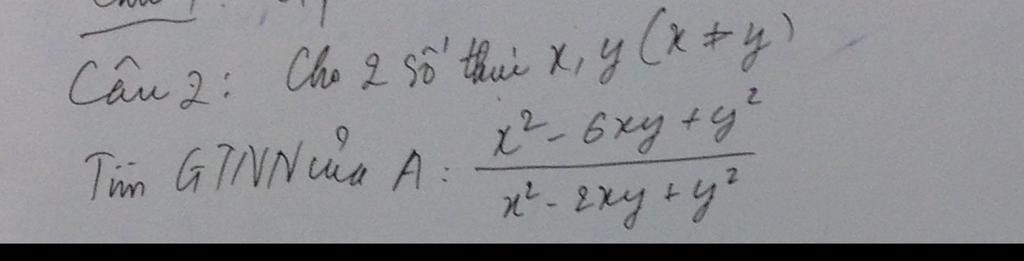 Câu 2: Cho 2 số thực x, y (x ≠ y)
Tìm GTNN của A: \frac{x^2 - 6xy + y^2}{x^2 - 2xy + y^2}